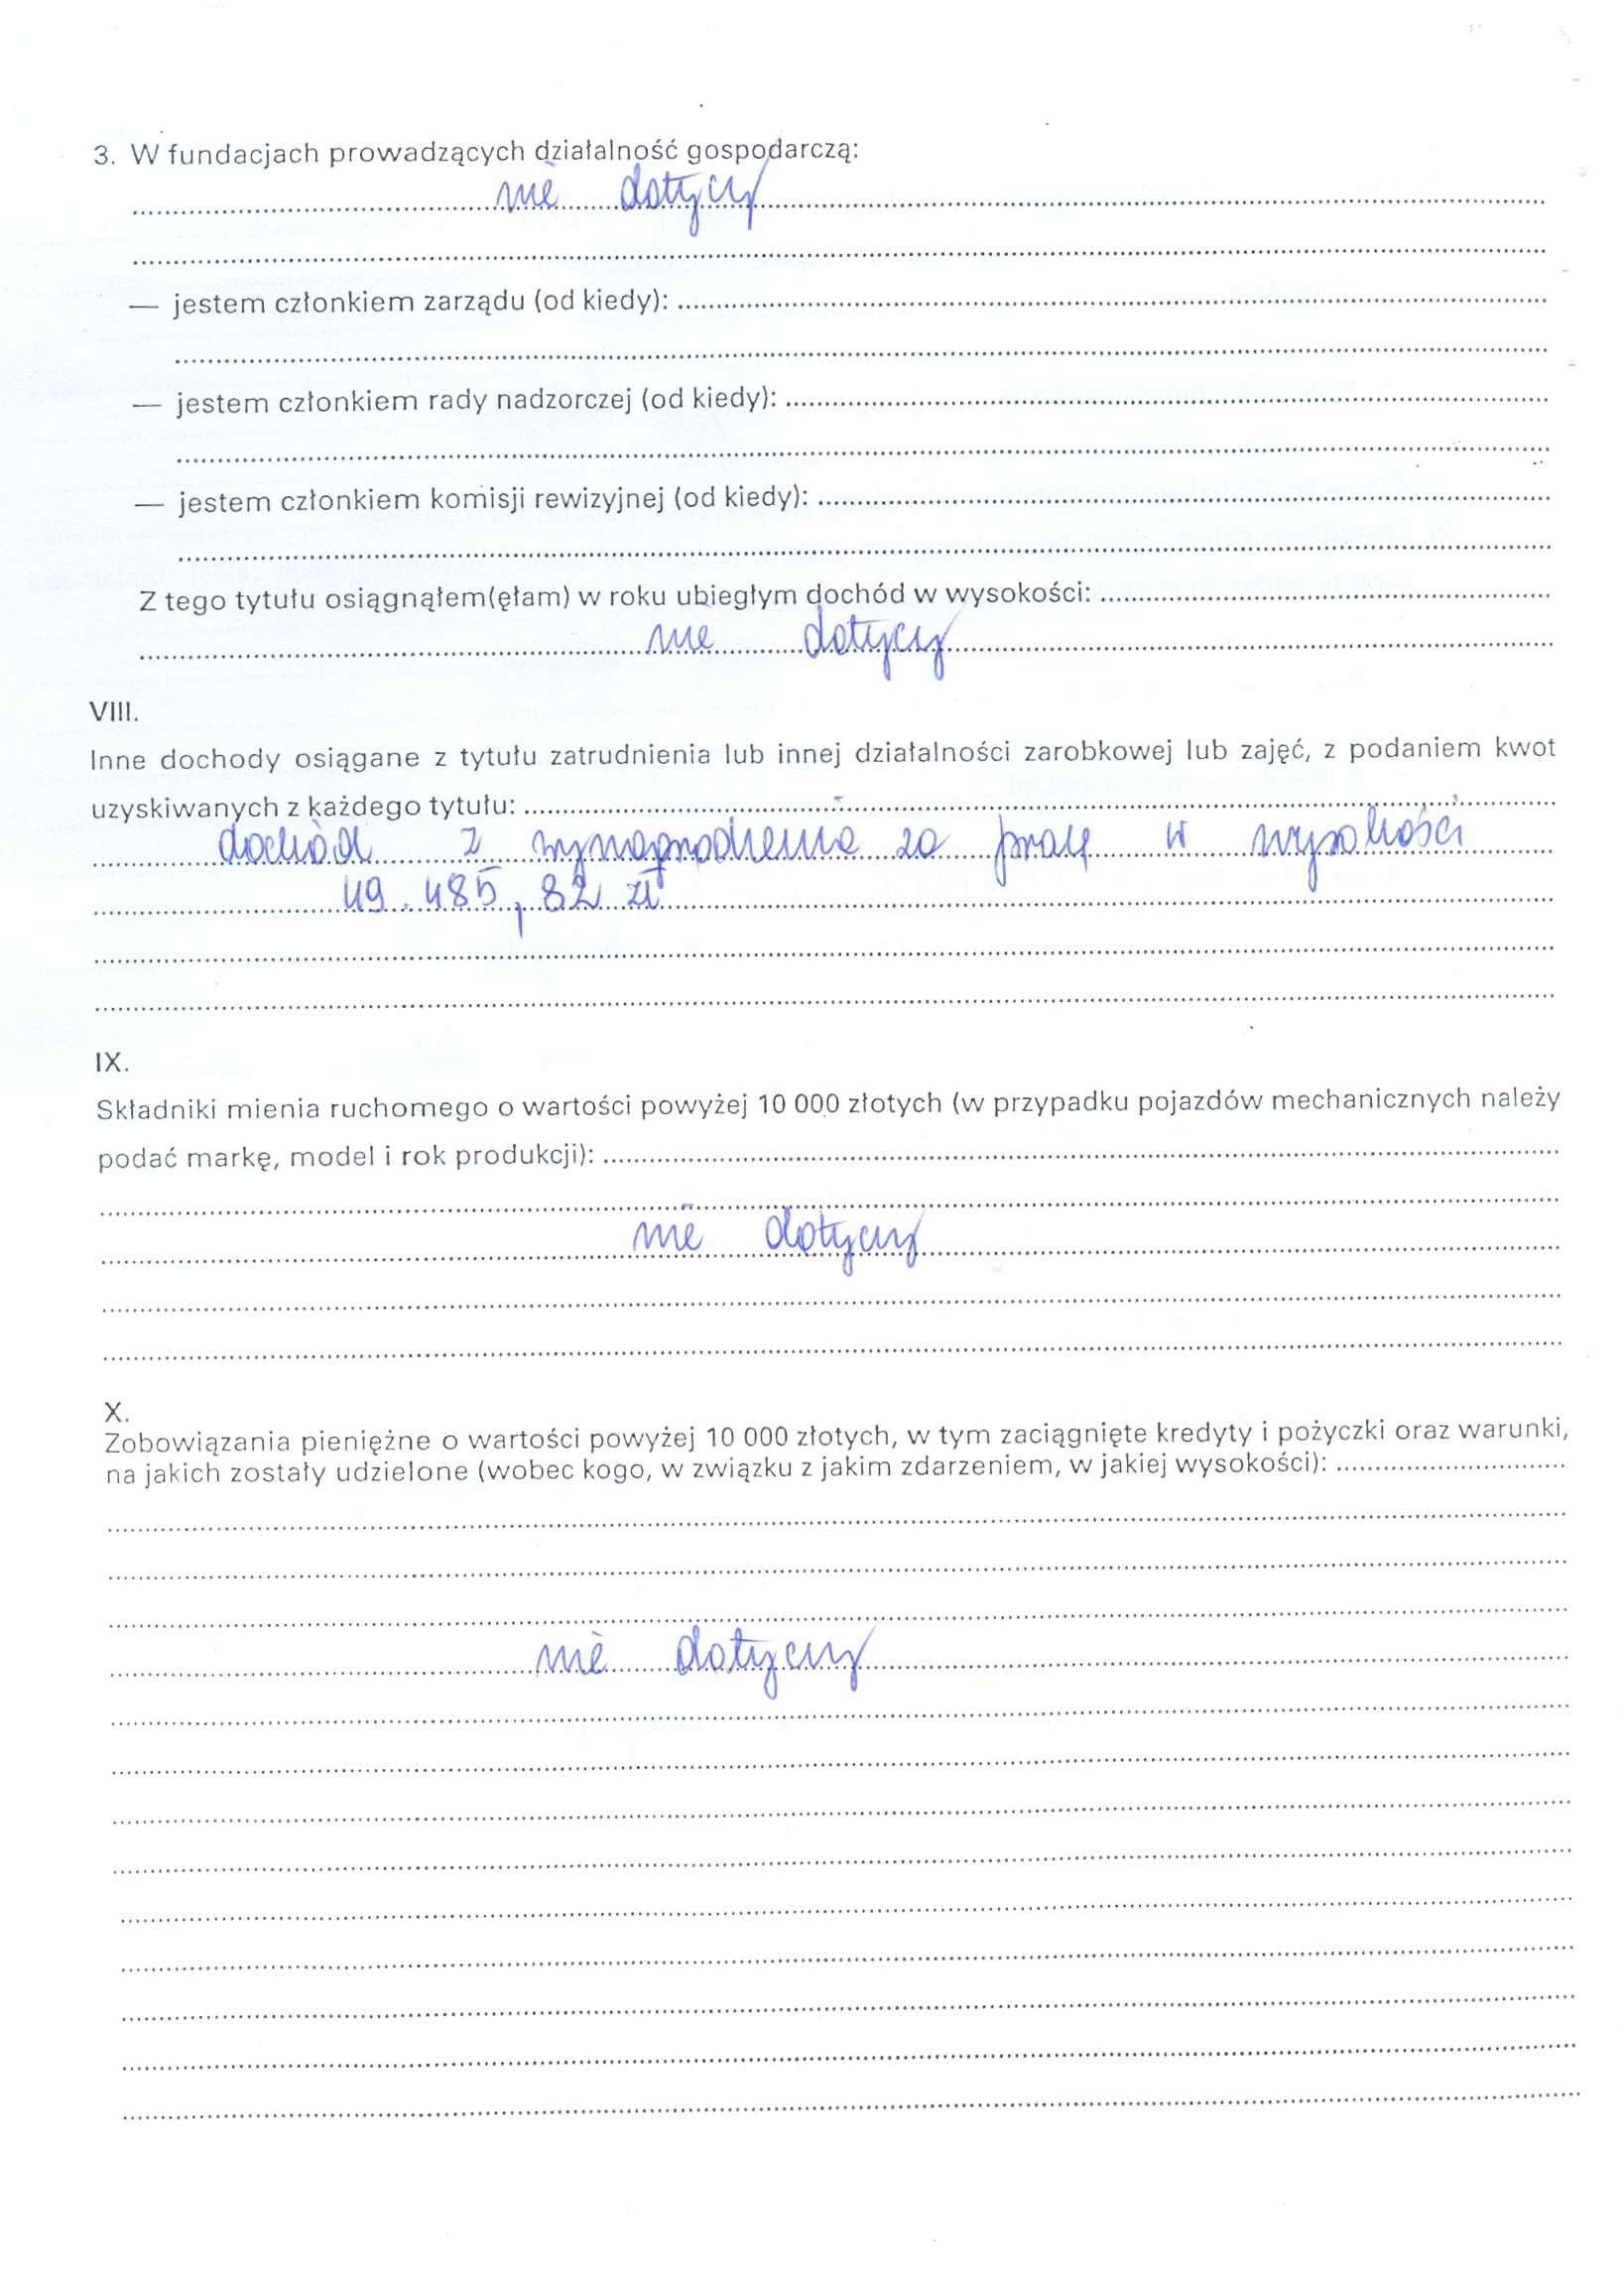 3. W fundacjach prowadzących działalność gospodarczą:
nie dotyczy
— jestem członkiem zarządu (od kiedy):
— jestem członkiem rady nadzorczej (od kiedy):
— jestem członkiem komisji rewizyjnej (od kiedy):
Z tego tytułu osiągnąłem(ęłam) w roku ubiegłym dochód w wysokości:
nie dotyczy
VIII.
Inne dochody osiągane z tytułu zatrudnienia lub innej działalności zarobkowej lub zajęć, z podaniem kwot
uzyskiwanych z każdego tytułu:
dochód z wynagrodzenia za pracę w wysokości
49.485,82 zł
IX.
Składniki mienia ruchomego o wartości powyżej 10 000 złotych (w przypadku pojazdów mechanicznych należy
podać markę, model i rok produkcji):
nie dotyczy
X.
Zobowiązania pieniężne o wartości powyżej 10 000 złotych, w tym zaciągnięte kredyty i pożyczki oraz warunki,
na jakich zostały udzielone (wobec kogo, w związku z jakim zdarzeniem, w jakiej wysokości):
nie dotyczy